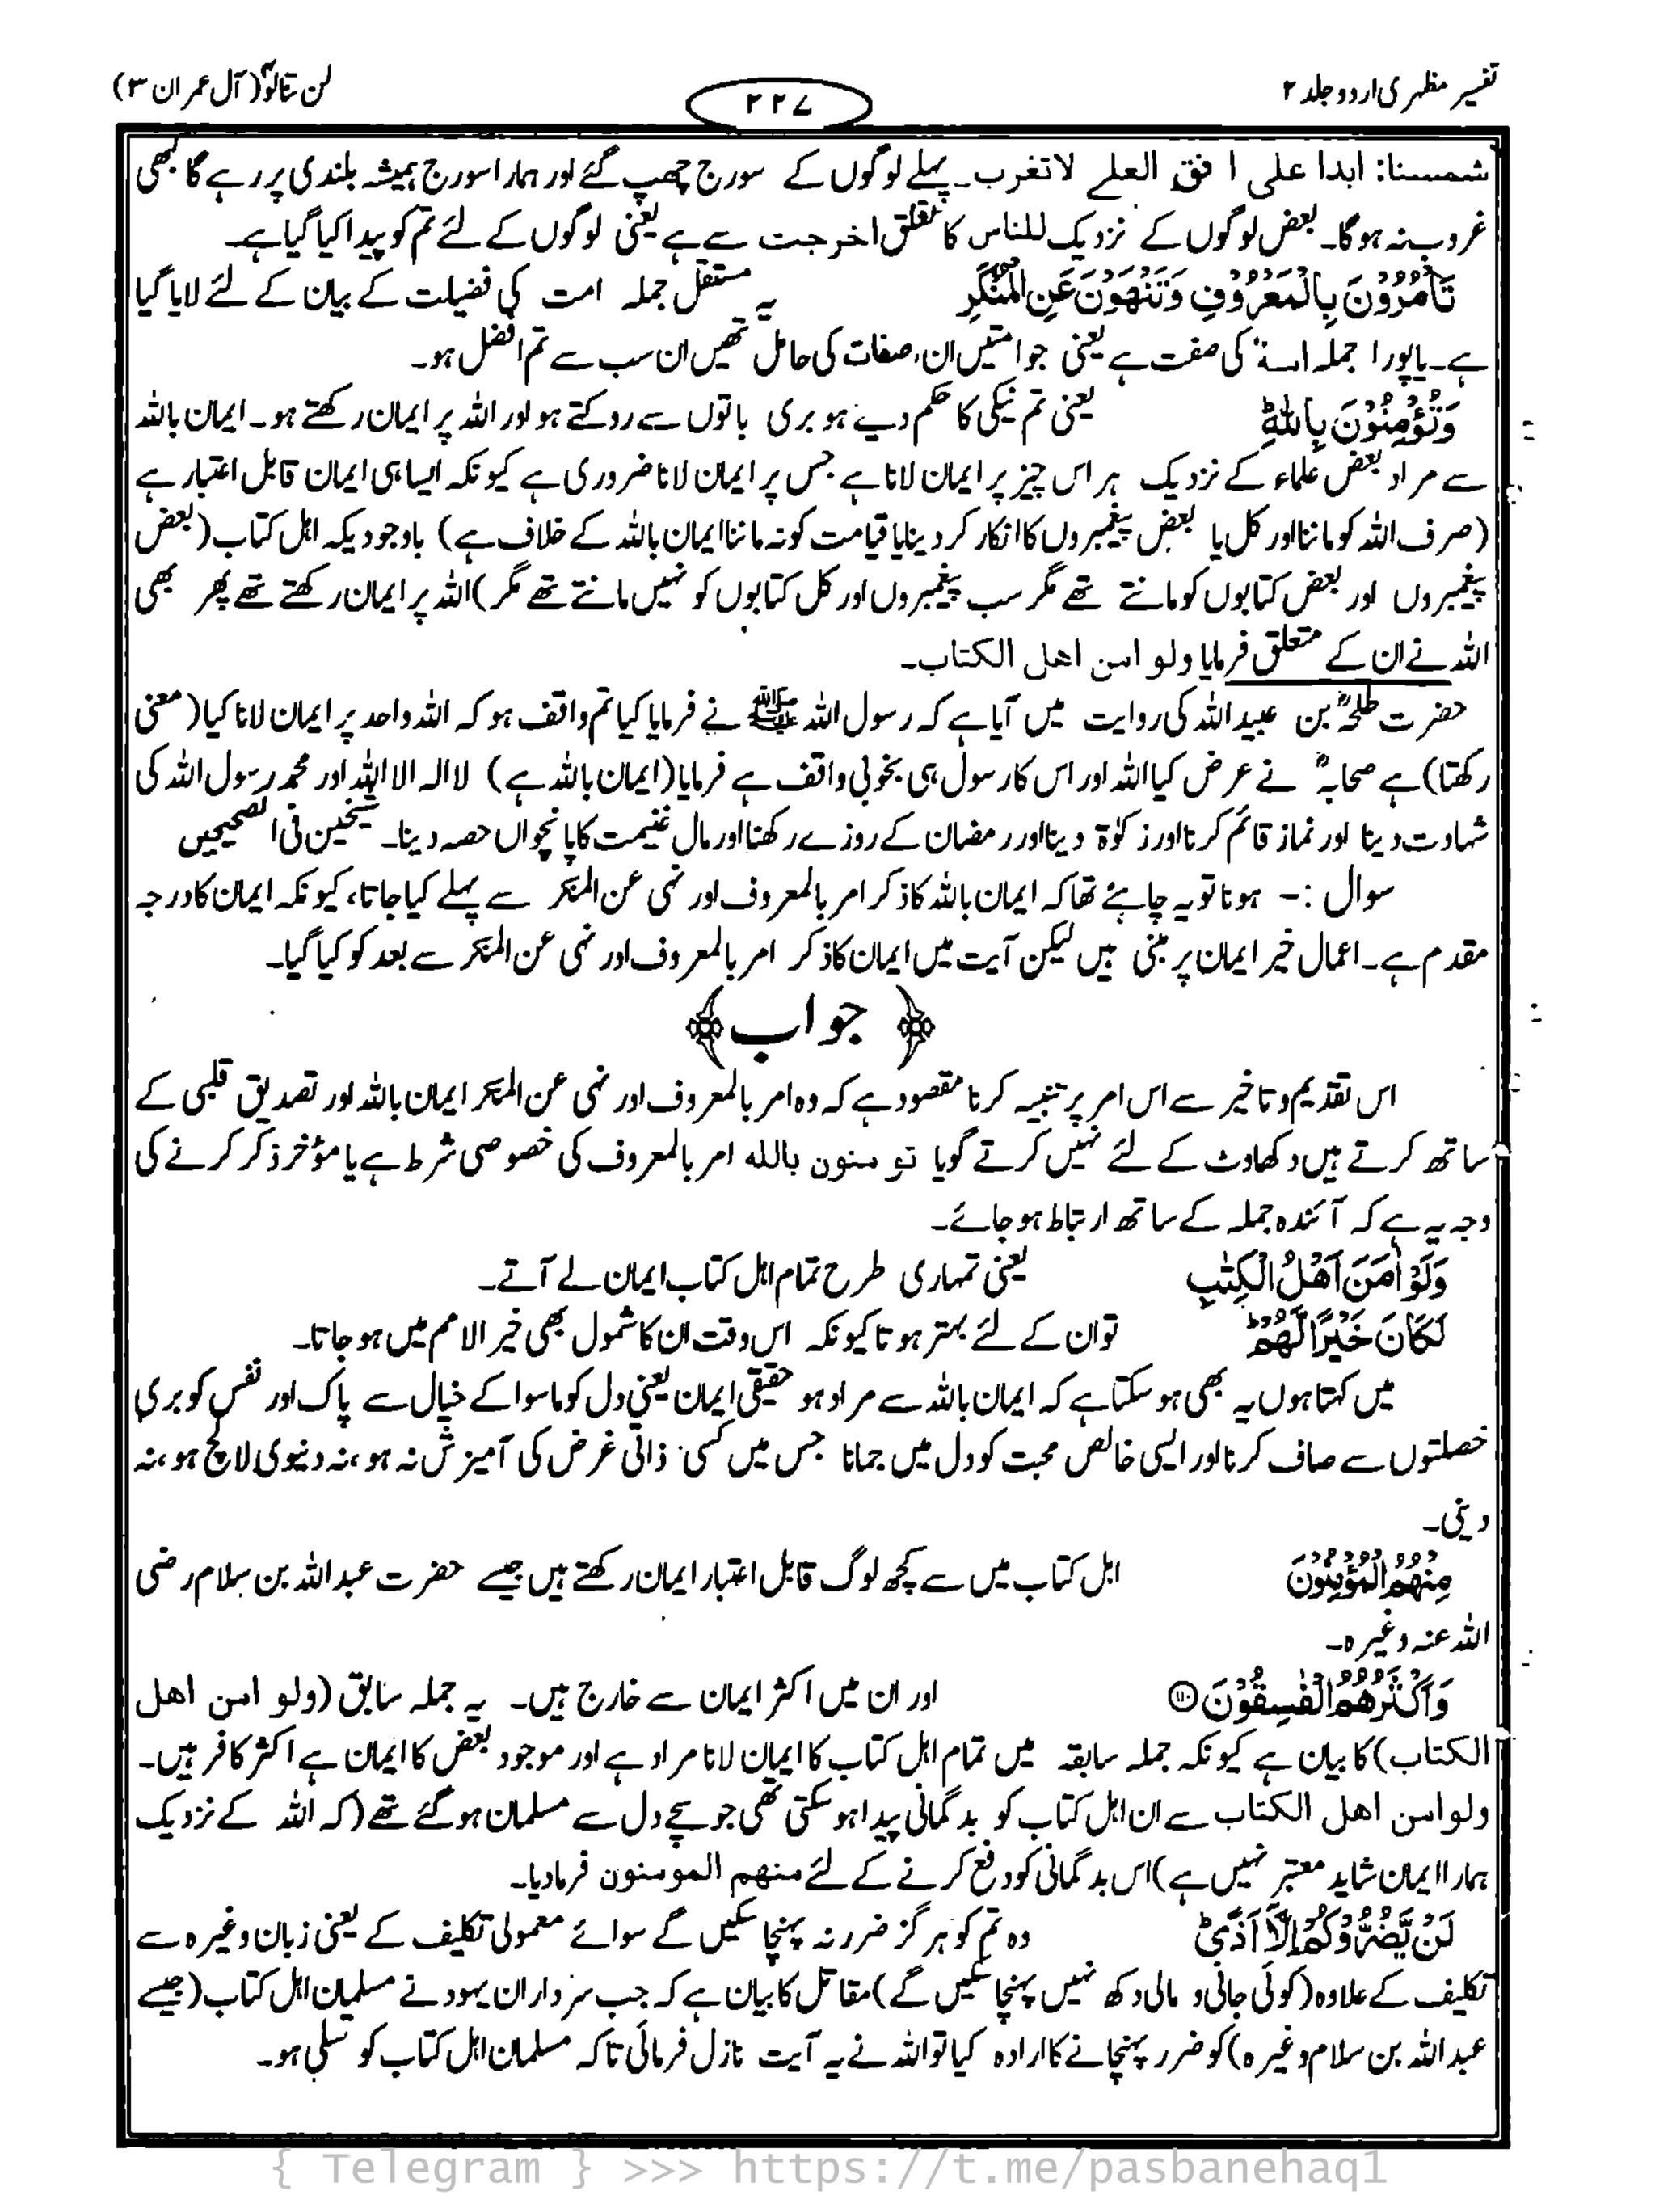 تفسیر مظہری اردو جلد ۲
۲۲۷
لن تنالوا (آل عمران ۳)
شمسنا: ابدا علی افق العلے لاتغرب۔ پہلے لوگوں کے سورج چھپ گئے اور ہمارا سورج ہمیشہ بلندی پر رہے گا کبھی
غروب نہ ہوگا۔ بعض لوگوں کے نزدیک للناس کا تعلق اخرجت سے ہے یعنی لوگوں کے لئے تم کو پیدا کیا گیا ہے۔
تَأْمُرُوْنَ بِالْمَعْرُوْفِ وَتَنْهَوْنَ عَنِ الْمُنْكَرِ یہ مستقل جملہ امت کی فضیلت کے بیان کے لئے لایا گیا
ہے۔ یا پورا جملہ امۃ کی صفت ہے یعنی جو امتیں ان صفات کی حامل تھیں ان سب سے تم افضل ہو۔
وَتُؤْمِنُوْنَ بِاللّٰهِ ؕ یعنی تم نیکی کا حکم دیتے ہو بری باتوں سے روکتے ہو اور اللہ پر ایمان رکھتے ہو۔ ایمان باللہ
سے مراد بعض علماء کے نزدیک ہر اس چیز پر ایمان لانا ہے جس پر ایمان لانا ضروری ہے کیونکہ ایسا ہی ایمان قابل اعتبار ہے
(صرف اللہ کو ماننا اور کل یا بعض پیغمبروں کا انکار کر دینا یا قیامت کو نہ ماننا ایمان باللہ کے خلاف ہے) باوجودیکہ اہل کتاب (بعض
پیغمبروں اور بعض کتابوں کو مانتے تھے مگر سب پیغمبروں اور کل کتابوں کو نہیں مانتے تھے مگر) اللہ پر ایمان رکھتے تھے پھر بھی
اللہ نے ان کے متعلق فرمایا ولو امن اھل الکتاب۔
حضرت طلحہؓ بن عبید اللہ کی روایت میں آیا ہے کہ رسول اللہ ﷺ نے فرمایا کیا تم واقف ہو کہ اللہ واحد پر ایمان لانا کیا (معنی
رکھتا) ہے صحابہؓ نے عرض کیا اللہ اور اس کا رسول ہی بخوبی واقف ہے فرمایا (ایمان باللہ ہے) لا الہ الا اللہ اور محمد رسول اللہ کی
شہادت دینا اور نماز قائم کرنا اور زکوٰۃ دینا اور رمضان کے روزے رکھنا اور مال غنیمت کا پانچواں حصہ دینا۔ شیخین فی الصحیحیں
سوال :- ہونا تو یہ چاہئے تھا کہ ایمان باللہ کا ذکر امر بالمعروف اور نہی عن المنکر سے پہلے کیا جاتا، کیونکہ ایمان کا درجہ
مقدم ہے۔ اعمال خیر ایمان پر مبنی ہیں لیکن آیت میں ایمان کا ذکر امر بالمعروف اور نہی عن المنکر سے بعد کو کیا گیا۔
﴿ جواب ﴾
اس تقدیم و تاخیر سے اس امر پر تنبیہ کرنا مقصود ہے کہ وہ امر بالمعروف اور نہی عن المنکر ایمان باللہ اور تصدیق قلبی کے
ساتھ کرتے ہیں دکھاوٹ کے لئے نہیں کرتے گویا تو منون باللہ امر بالمعروف کی خصوصی شرط ہے یا مؤخر ذکر کرنے کی
وجہ یہ ہے کہ آئندہ جملہ کے ساتھ ارتباط ہو جائے۔
وَلَوْ اٰمَنَ اَهْلُ الْكِتٰبِ یعنی تمہاری طرح تمام اہل کتاب ایمان لے آتے۔
لَكَانَ خَيْرًا لَّهُمْ ؕ تو ان کے لئے بہتر ہوتا کیونکہ اس وقت ان کا شمول بھی خیر الامم میں ہو جاتا۔
میں کہتا ہوں یہ بھی ہو سکتا ہے کہ ایمان باللہ سے مراد ہو حقیقی ایمان یعنی دل کو ماسوا کے خیال سے پاک اور نفس کو بری
خصلتوں سے صاف کرنا اور ایسی خالص محبت کو دل میں جمانا جس میں کسی ذاتی غرض کی آمیزش نہ ہو، نہ دنیوی لالچ ہو، نہ
دینی۔
مِنْهُمُ الْمُؤْمِنُوْنَ اہل کتاب میں سے کچھ لوگ قابل اعتبار ایمان رکھتے ہیں جیسے حضرت عبد اللہ بن سلام رضی
اللہ عنہ وغیرہ۔
وَاَكْثَرُهُمُ الْفٰسِقُوْنَ ۝۱۱۰ اور ان میں اکثر ایمان سے خارج ہیں۔ یہ جملہ سابق (ولو امن اھل
الکتاب) کا بیان ہے کیونکہ جملہ سابقہ میں تمام اہل کتاب کا ایمان لانا مراد ہے اور موجود بعض کا ایمان ہے اکثر کافر ہیں۔
ولو امن اھل الکتاب سے ان اہل کتاب کو بدگمانی پیدا ہو سکتی تھی جو سچے دل سے مسلمان ہو گئے تھے (کہ اللہ کے نزدیک
ہمارا ایمان شاید معتبر نہیں ہے) اس بدگمانی کو دفع کرنے کے لئے منھم المومنون فرمادیا۔
لَنْ يَّضُرُّوْكُمْ اِلَّاۤ اَذًى ؕ وہ تم کو ہرگز ضرر نہ پہنچا سکیں گے سوائے معمولی تکلیف کے یعنی زبان وغیرہ سے
تکلیف کے علاوہ (کوئی جانی و مالی دکھ نہیں پہنچا سکیں گے) مقاتل کا بیان ہے کہ جب سرداران یہود نے مسلمان اہل کتاب (جیسے
عبد اللہ بن سلام وغیرہ) کو ضرر پہنچانے کا ارادہ کیا تو اللہ نے یہ آیت نازل فرمائی تاکہ مسلمان اہل کتاب کو تسلی ہو۔
{ Telegram } >>> https://t.me/pasbanehaq1